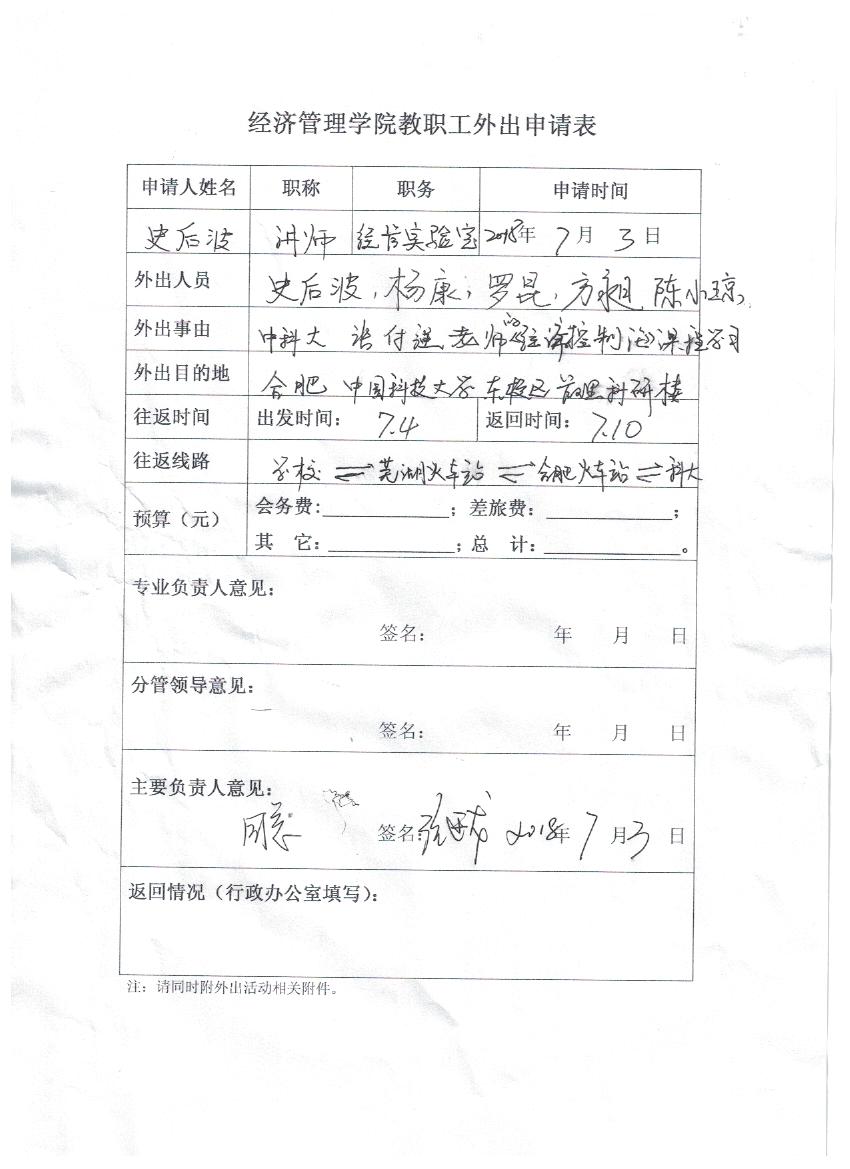 经济管理学院教职工外出申请表
申请人姓名 职称 职务 申请时间
史后波 讲师 经信实验室 2018年 7月 3日
外出人员 史后波,杨康,罗昆,方昶,陈小琼
外出事由 中科大 张付 老师的 控制 课程学习
外出目的地 合肥 中国科技大学 东校区 管理科研楼
往返时间 出发时间: 7.4 返回时间: 7.10
往返线路 学校 ⇌ 芜湖火车站 ⇌ 合肥火车站 ⇌ 科大
预算(元) 会务费: ; 差旅费: ;
其 它: ; 总 计: 。
专业负责人意见:
签名: 年 月 日
分管领导意见:
签名: 年 月 日
主要负责人意见:
同意 签名: 2018年 7月3日
返回情况(行政办公室填写):
注:请同时附外出活动相关附件。